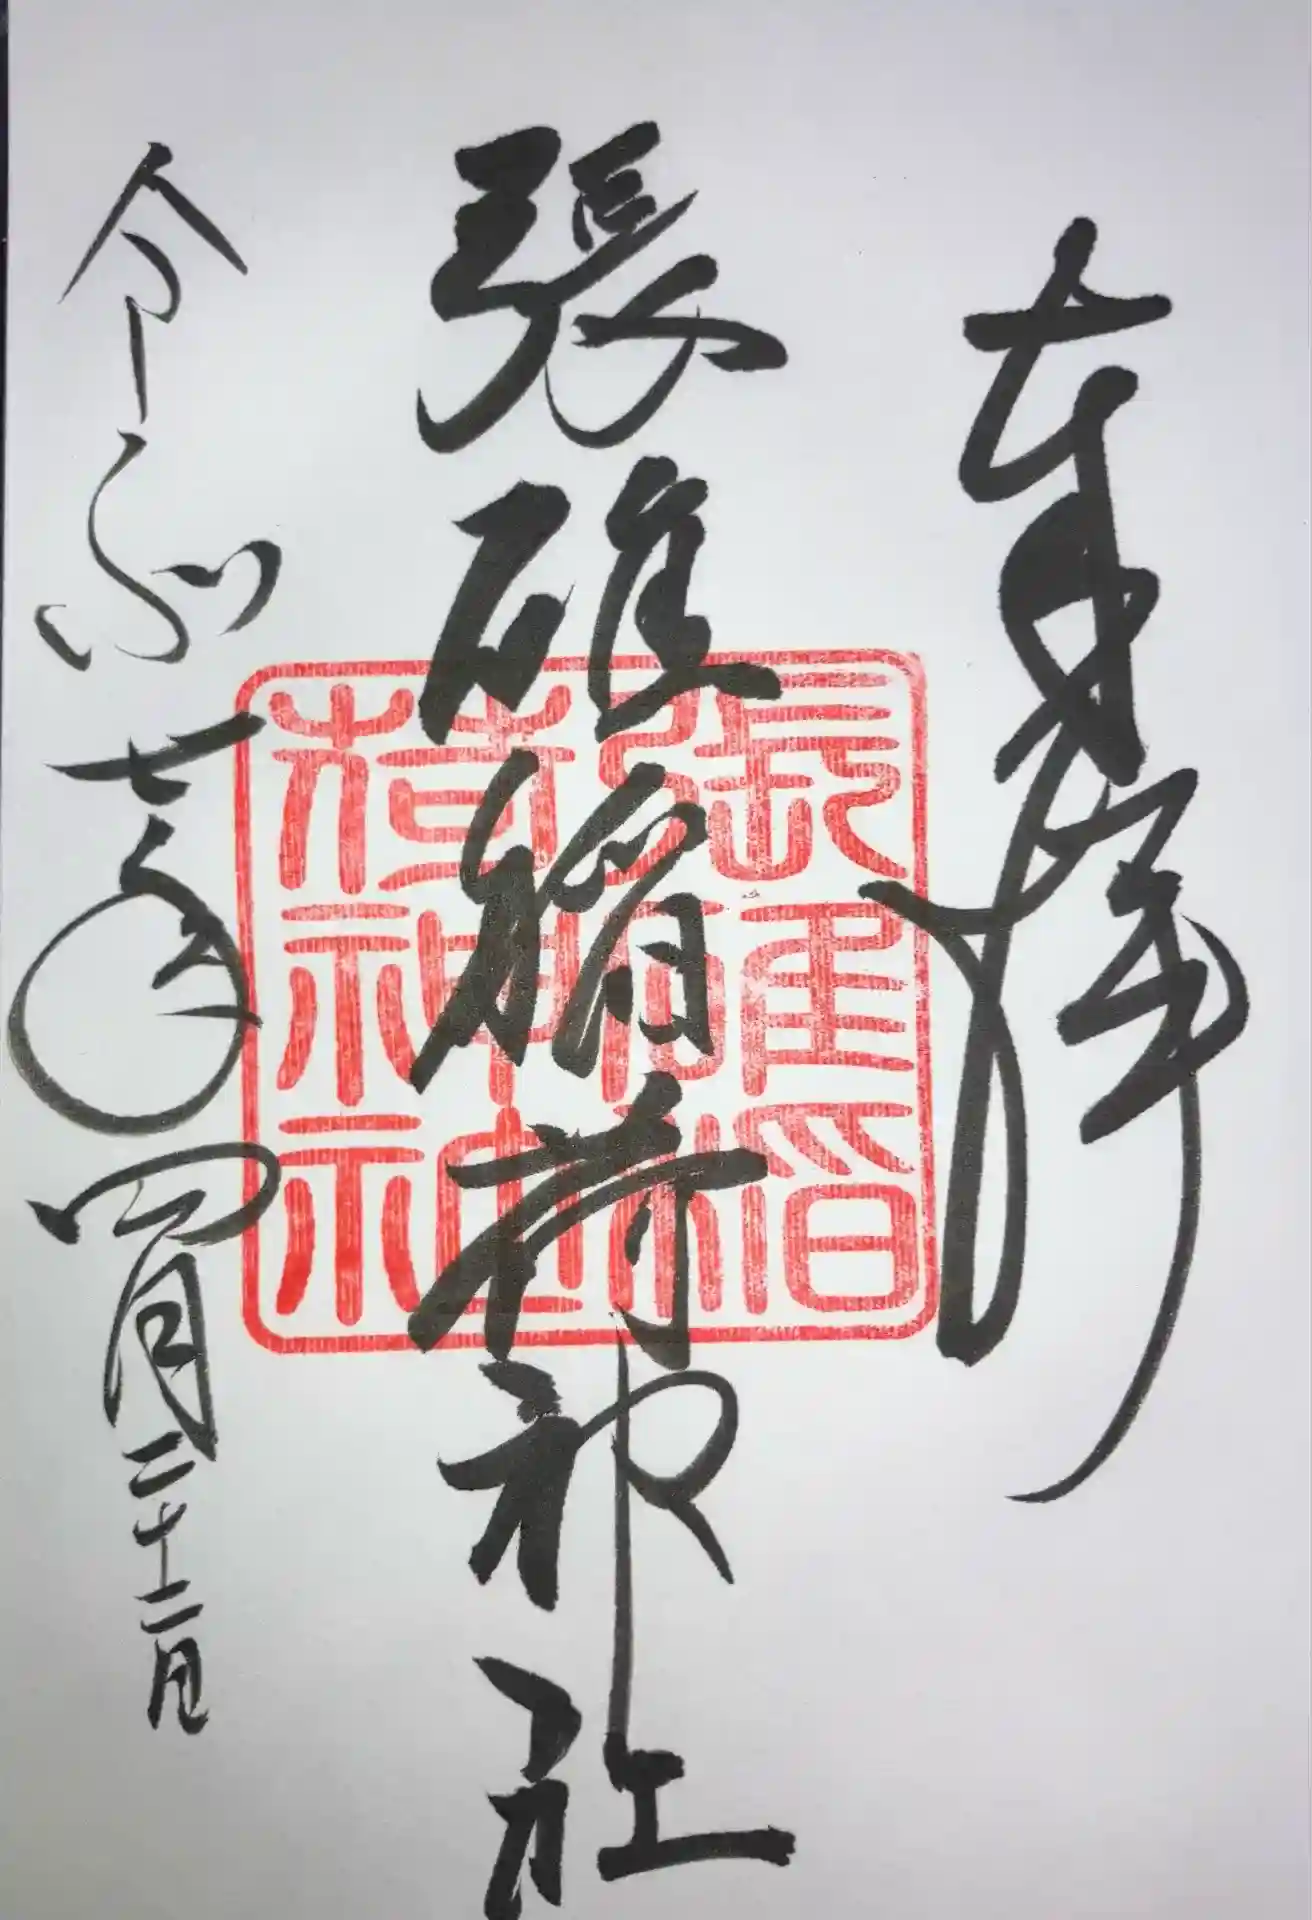 奉拝
張碓稲荷神社
張碓稲
荷神社
令和七年四月二十二日